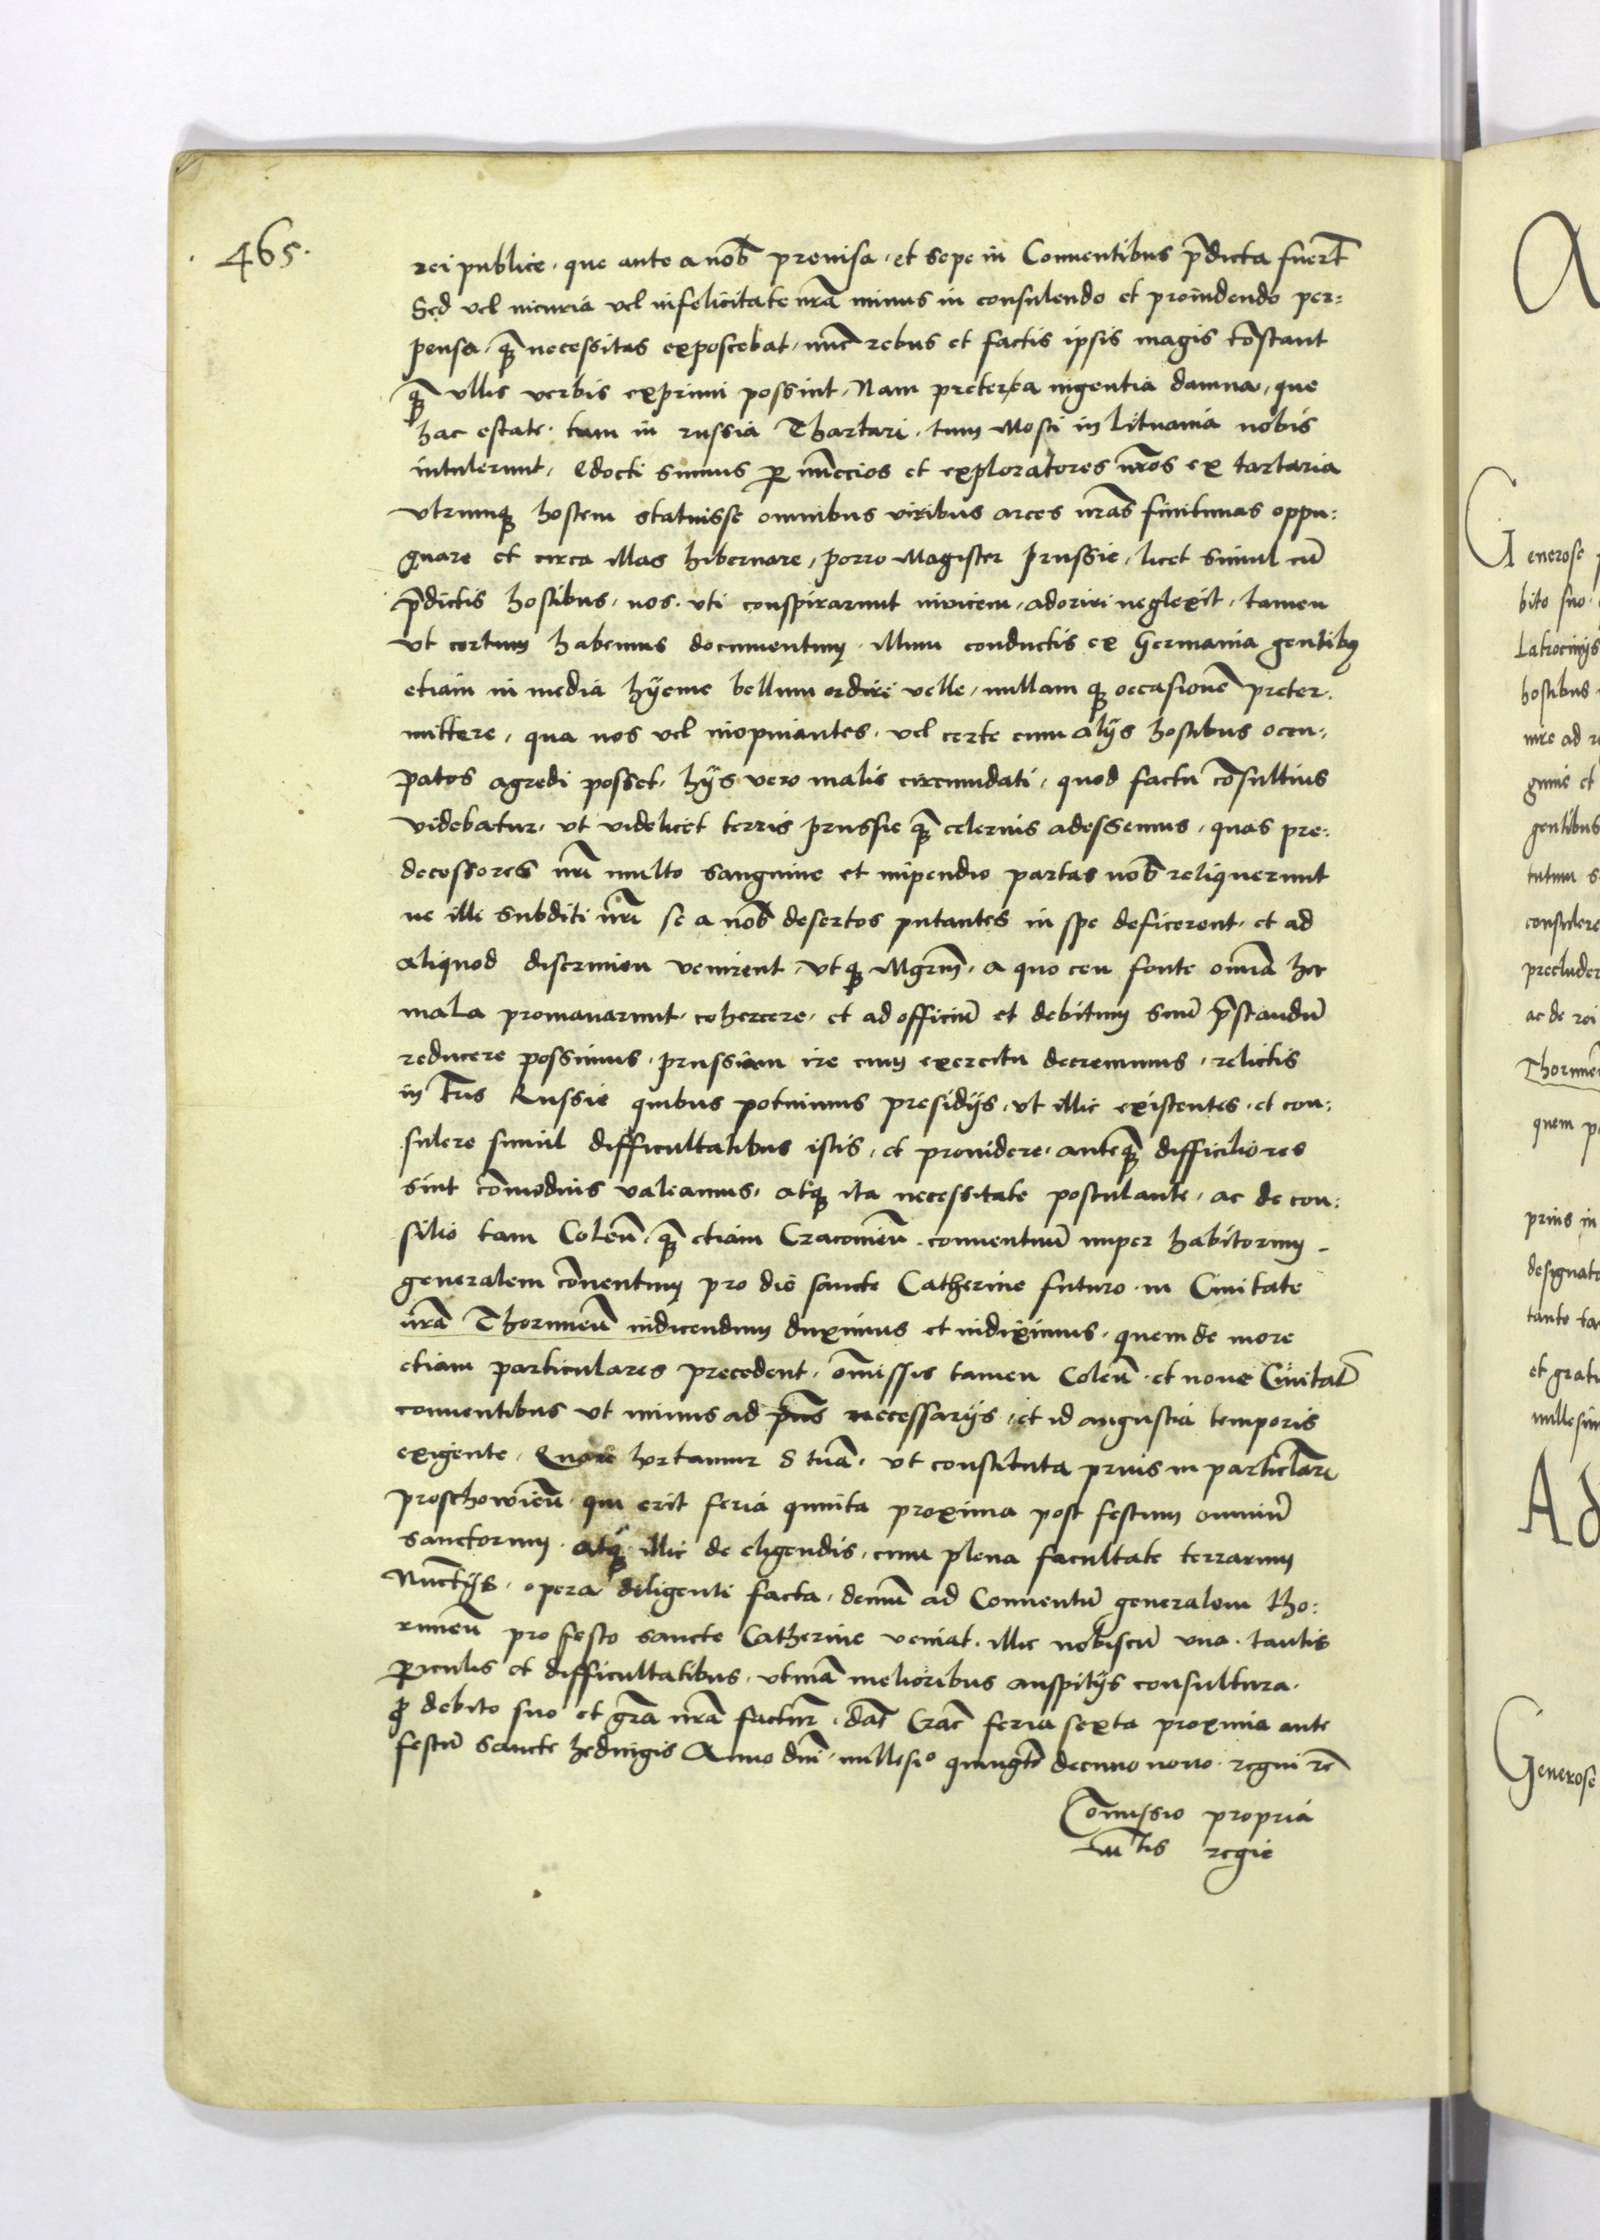 465.
rei publice, que ante a nob̄ prouisa, et sepe in Conuentibus p̄dicta fuer̄t
Sed vel incuria vel infelicitate nr̄a minus in consulendo et prouidendo per:
pensa, q̄ꝫ necessitas exposcebat, nūc rebus et factis ipsis magis cōstant
q̄ꝫ vllis verbis exprimi possint, Nam preterea ingentia damna, que
hac estate, tum in russia Thartari, tum Mosci in Lituania nobis
intulerunt, edocti sumus ꝑ nūccios et exploratores nr̄os ex tartaria
vtrumqꝫ hostem statuisse omnibus viribus arces nr̄as finitimas oppu:
gnare et circa illas hibernare, porro Magister prussie, licet simul cū
p̄dictis hostibus, nos, vti conspirarunt inuicem, adoriri neglexit, tamen
vt certum habemus documentum, illum conductis ex Germania gentibꝫ
etiam in media hyeme bellum ordiri velle, nullamqꝫ occasionē preter:
mittere, qua nos vel inopinantes, vel certe cum alijs hostibus occu:
patos agredi posset, hijs vero malis circumdati, quod factu cōsultius
videbatur, vt videlicet terris prussie q̄ꝫ celerius adessemus, quas pre:
decessores nr̄i multo sanguine et impendio partas nob̄ reliquerunt
ne illi subditi nr̄i se a nob̄ desertos putantes in spe deficerent, et ad
aliquod discrimen venirent, vtqꝫ Mgrm̄, a quo ceu fonte om̄ia hec
mala promanarunt, cohercere, et ad officiū et debitum suū p̄standū
reducere possimus, prussiam ire cum exercitu decreuimus, relictis
in tr̄is Russie quibus potuimus presidijs, vt illic existentes, et con:
sulere simul difficultatibus istis, et prouidere, anteq̄ꝫ difficiliores
sint cōmodius valeamus, atqꝫ ita necessitate postulante, ac de con:
silio tam Coleñ, q̄ꝫ etiam Cracouieñ, conuentuū nuper habitorum,
generalem cōuentum pro die sancte Catherine futuro, in Ciuitate
nr̄a Thorunieñ indicendum duximus et indiximus, quem de more
etiam particulares precedent, om̄issis tamen Coleñ, et noue Ciuitat̄
conuentibus vt minus ad pn̄s necessarijs, et id angustia temporis
exigente, Quare hortamur S tuā, vt constituta prius in particlari
proschowieñ, qui erit feria quinta proxima post festum omniū
sanctorum, atqꝫ illic de eligendis, cum plena facultate terrarum
Nuctijs, opera diligenti facta, demū ad Conuentū generalem tho:
runieñ pro festo sancte Catherine veniat, illic nobiscū vna, tantis
ꝑiculis et difficultatibus, vtinā melioribus auspitijs consultura,
ꝓ debito suo et gr̄a nr̄a factur̄, dat̄ Crac̄ feria sexta proxima ante
festū sancte hedwigis Anno dnī millesīo quingt̄o decimo nono, regni rē
Cōmissio propria
m̄tis regie